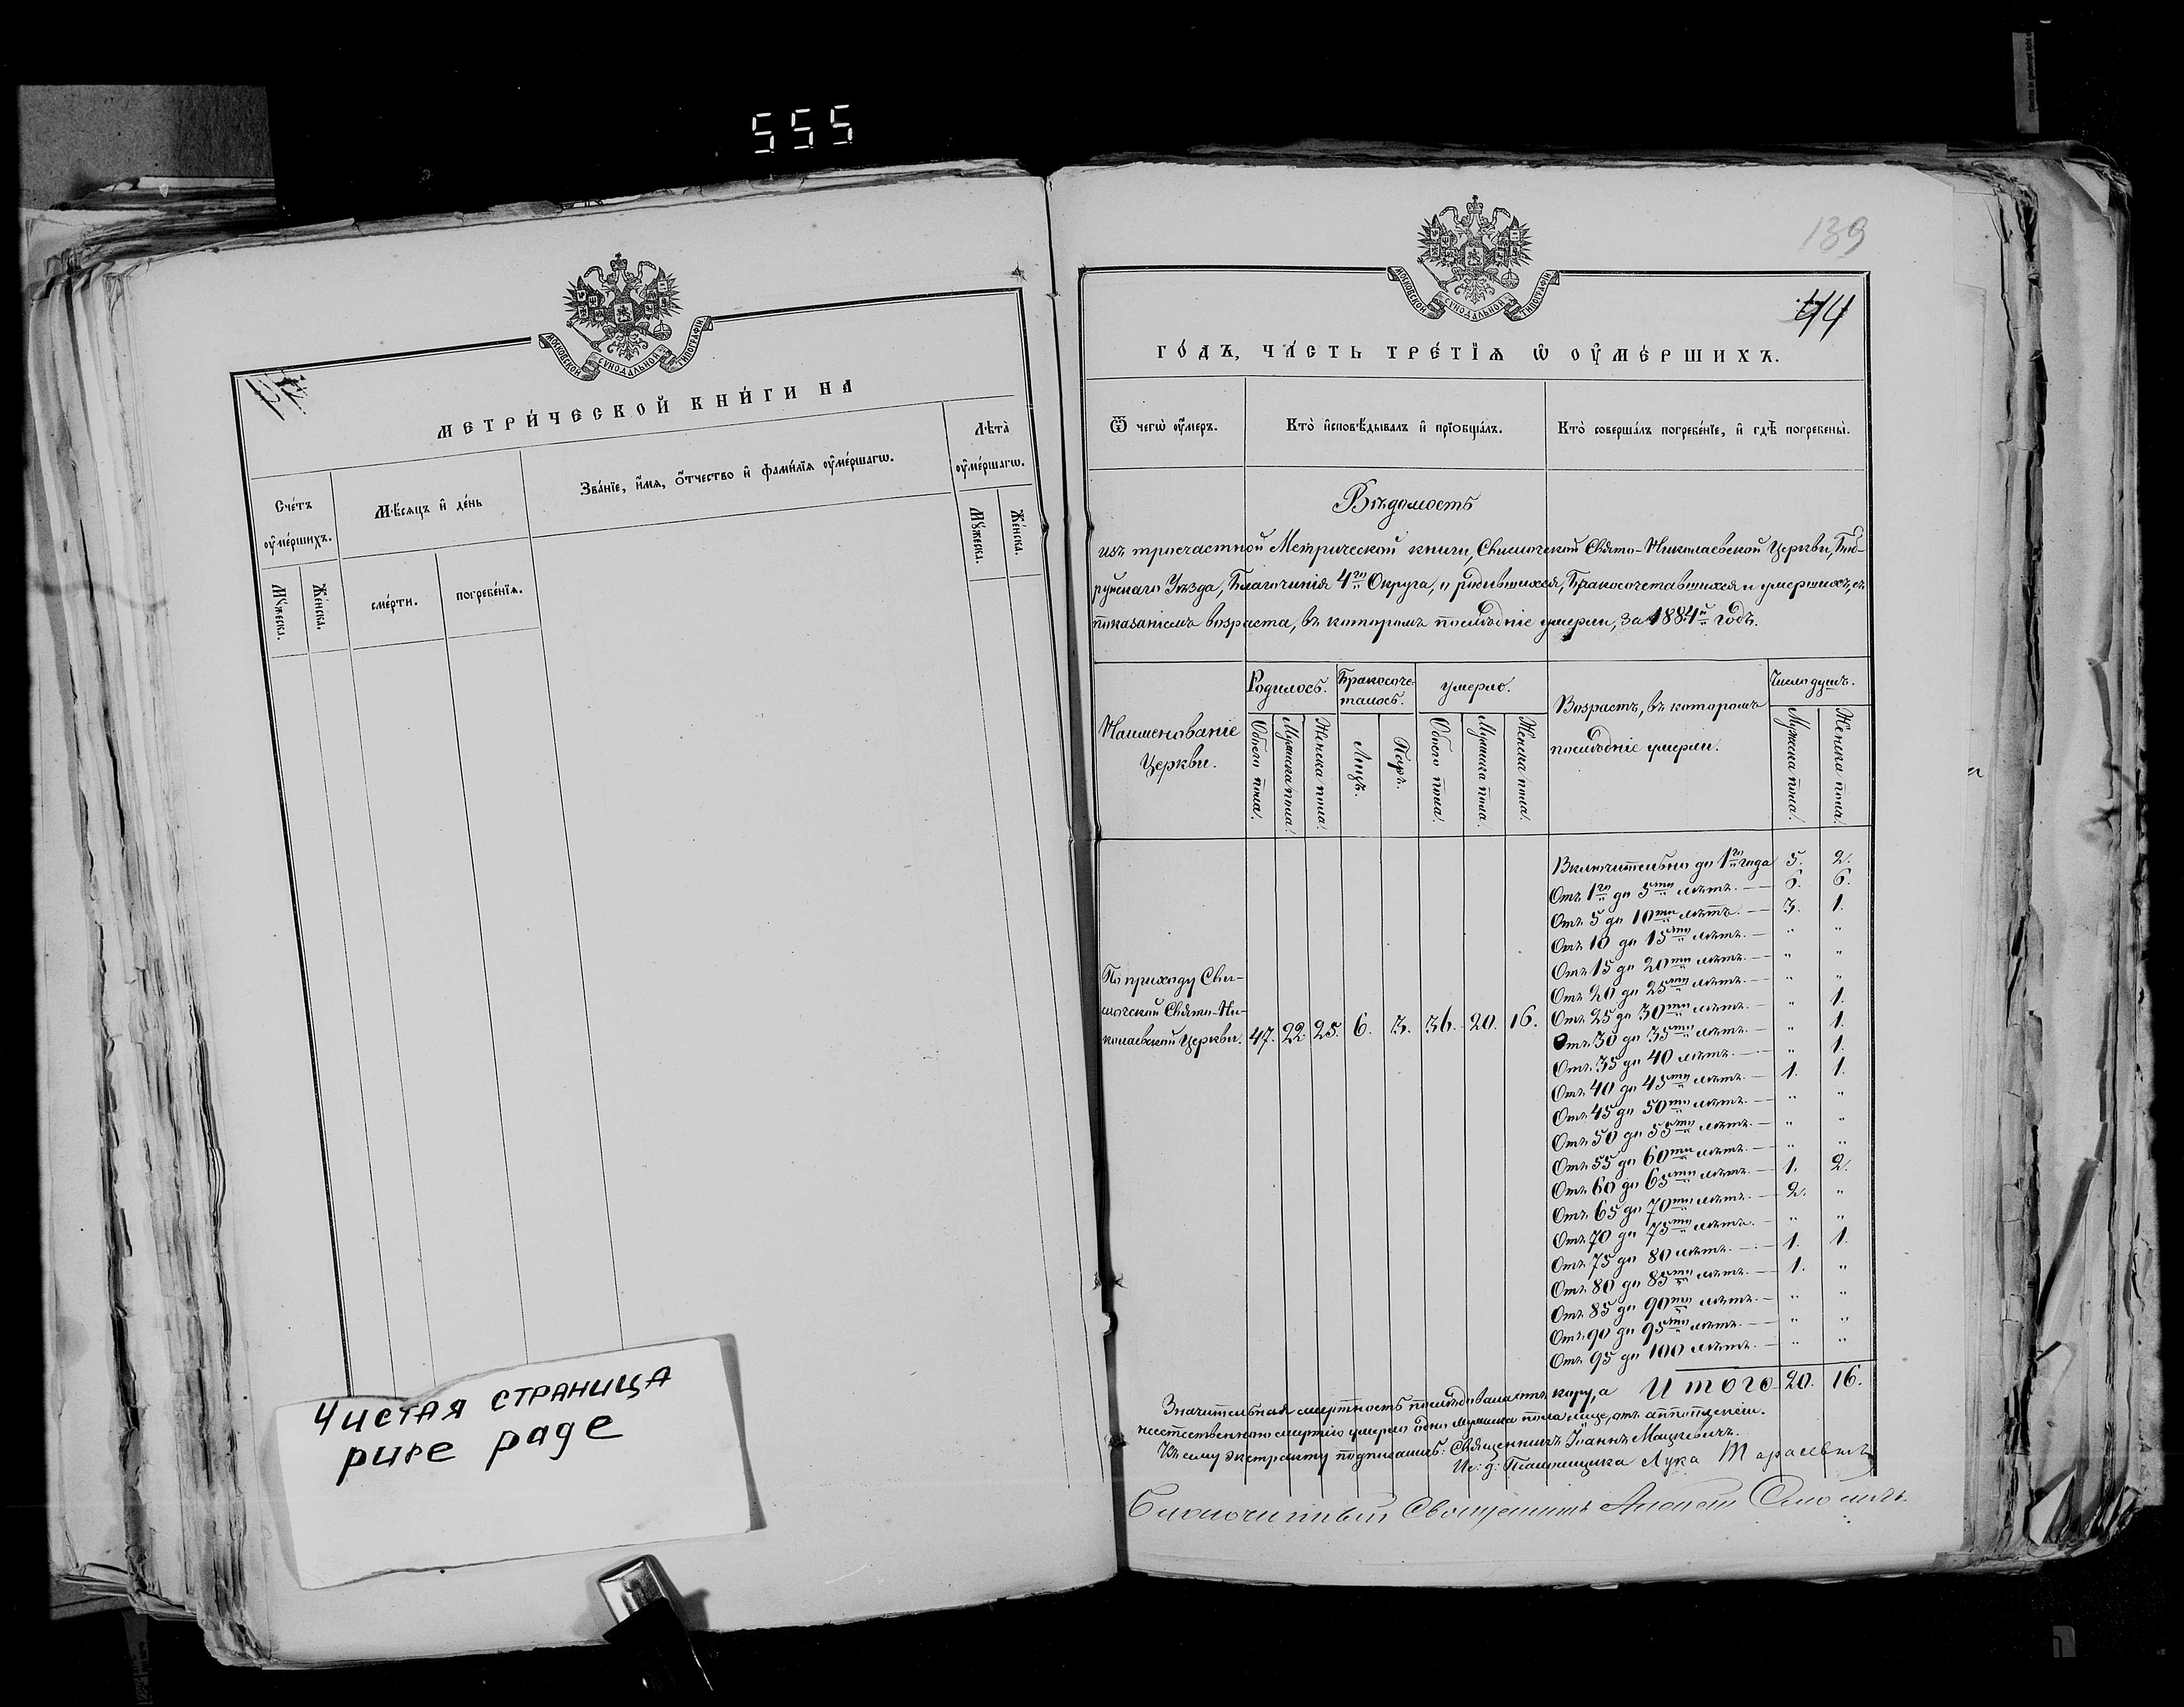 555
МОСКОВСКОЙ СѴНОДАЛЬНОЙ ТИПОГРАФІИ
МЕТРИ́ЧЕСКОЙ КНИ́ГИ НА
Сче́тъ
оу҆ме́ршихъ.
Мѣ́сяцъ и҆ де́нь
Зва́нїе, и҆́мѧ, ѻ҆́тчество и҆ фами́лїѧ оу҆ме́ршагѡ.
Лѣта̀
оу҆ме́ршагѡ.
Мꙋ́жеска.
Же́нска.
сме́рти.
погребе́нїѧ.
Мꙋ́жеска.
Же́нска.
Чистая страница
pure page
139
МОСКОВСКОЙ СѴНОДАЛЬНОЙ ТИПОГРАФІИ
44
ГО́ДЪ, ЧА́СТЬ ТРЕ́ТЇѦ Ѡ҆ ОУ҆МЕ́РШИХЪ.
Ѿ чегѡ̀ оу҆́меръ.
Кто̀ и҆сповѣ́дывалъ и҆ прїѻбща́лъ.
Кто̀ соверша́лъ погребе́нїе, и҆ гдѣ̀ погребены̀.
Вѣдомость
изъ троечастной Метрической книги, Свислочской Свято-Николаевской Церкви, Боб-
руйскаго Уѣзда, Благочинія 4го Округа, о родившихся, бракосочетавшихся и умершихъ, съ
показаніемъ возраста, въ которомъ послѣдніе умерли, за 1884й годъ.
Наименованіе
Церкви.
Родилось.
Бракосоче-
талось.
Умерло.
Возрастъ, въ которомъ
послѣдніе умерли.
Число душъ.
Обоего пола.
Мужска пола.
Женска пола.
Лицъ.
Паръ.
Обоего пола.
Мужска пола.
Женска пола.
Мужска пола.
Женска пола.
По приходу Сви-
слочской Свято-Ни-
колаевской Церкви. 47. 22. 25. 6. 3. 36. 20. 16.
Включительно до 1го года 5. 2.
Отъ 1го до 5ти лѣтъ. — 6. 6.
Отъ 5 до 10ти лѣтъ. — 3. 1.
Отъ 10 до 15ти лѣтъ. — " "
Отъ 15 до 20ти лѣтъ. — " "
Отъ 20 до 25ти лѣтъ. — " "
Отъ 25 до 30ти лѣтъ. — " 1.
Отъ 30 до 35ти лѣтъ. — " 1.
Отъ 35 до 40 лѣтъ. — " 1.
Отъ 40 до 45ти лѣтъ. — 1. 1.
Отъ 45 до 50ти лѣтъ. — " "
Отъ 50 до 55ти лѣтъ. — " "
Отъ 55 до 60ти лѣтъ. — " "
Отъ 60 до 65ти лѣтъ. — 1. 2.
Отъ 65 до 70ти лѣтъ. — 2. "
Отъ 70 до 75ти лѣтъ. — " "
Отъ 75 до 80 лѣтъ. — 1. 1.
Отъ 80 до 85ти лѣтъ. — 1. "
Отъ 85 до 90ти лѣтъ. — " "
Отъ 90 до 95ти лѣтъ. — " "
Отъ 95 до 100 лѣтъ. — " "
Итого 20. 16.
Значительная смертность послѣдовала отъ кору, а
неестественною смертію умерло одно мужска пола лице, отъ
Къ сему экстракту подписались: Священникъ Іоаннъ Мацкевичъ.
Ис: д: Псаломщика Лука Тарасевичъ
Благочинный Священникъ Алексѣй